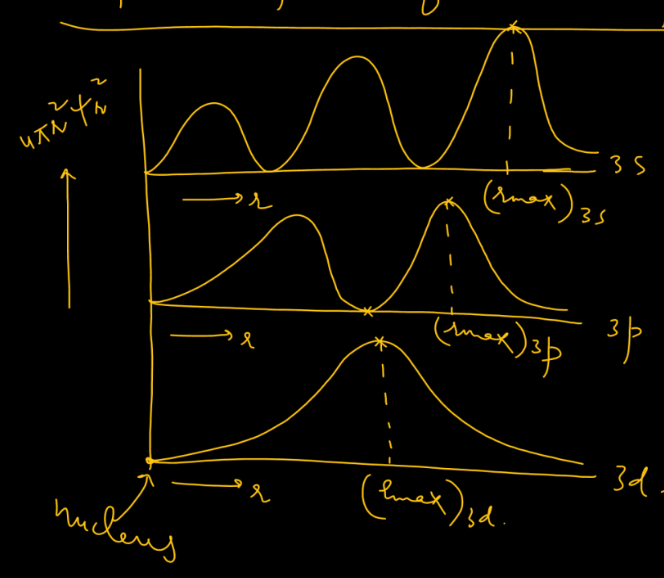 4πr²ψr²
3s
→ r
(rmax)3s
3p
→ r
(rmax)3p
3d.
→ r
(rmax)3d.
nucleus